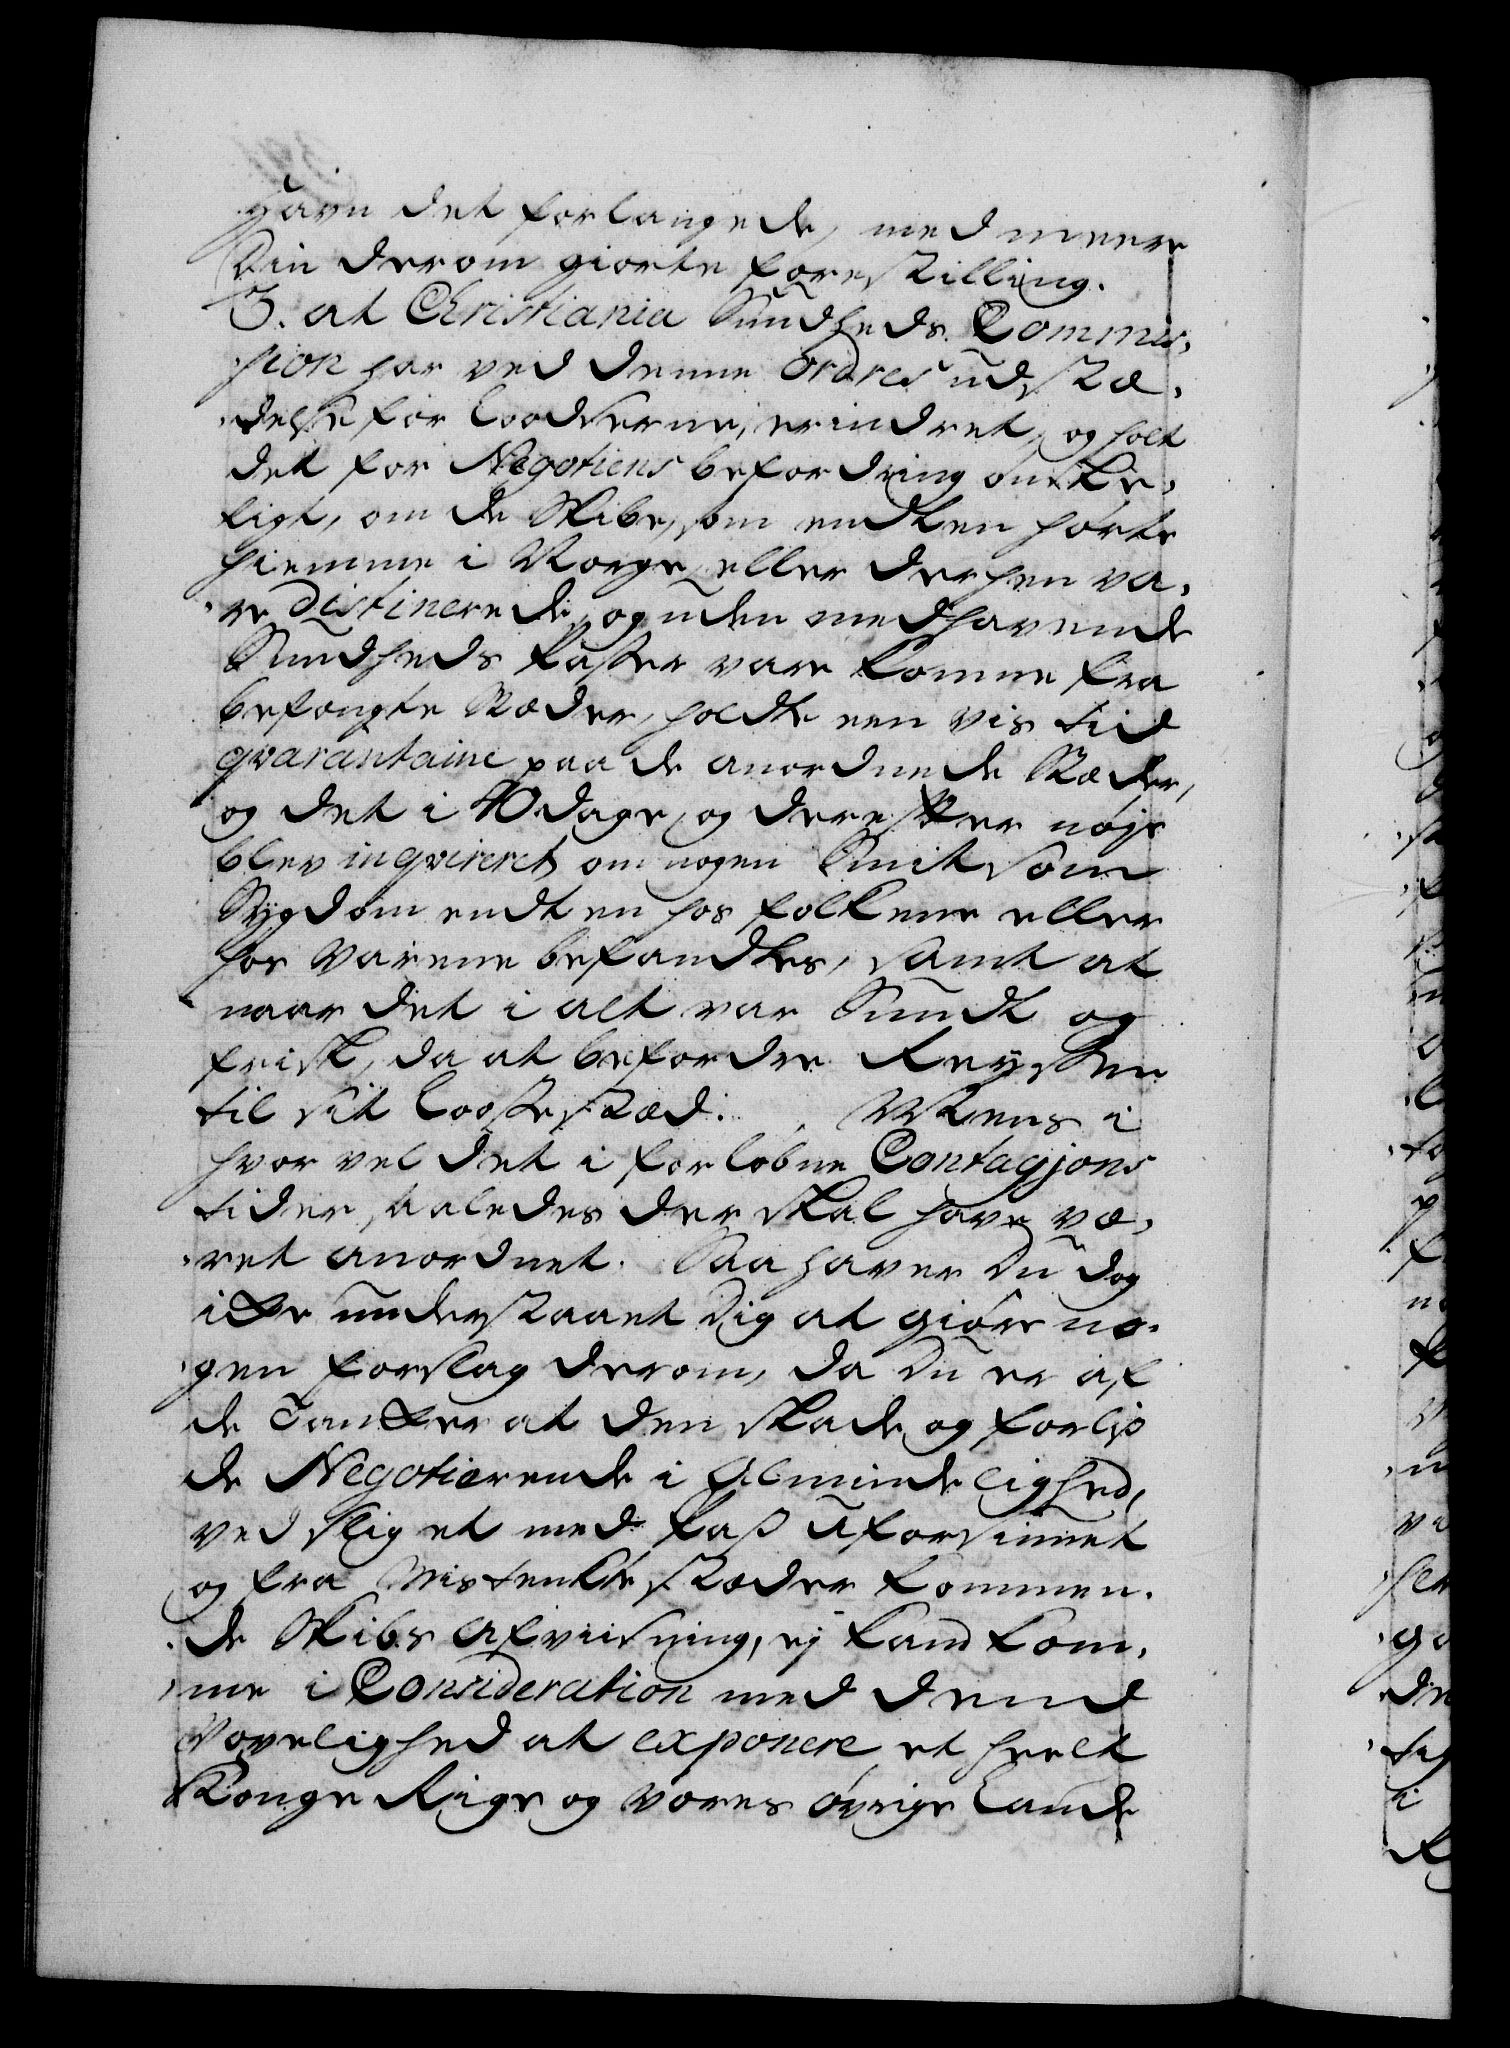 havn det forlangede, med meere
Din derom giorte forestilling.
3. at Christiania Sundheds Commis-
sion har ved denne ordres udstæ-
delse for Loodserne, erindret, og holt
det for Negotiens befordring ønske-
ligt, om de Skibe, som endten hørte
hiemme i Norge, eller derhen va-
re distinerede, og uden medhavende
Sundheds Passer vare komne fra
befængte Stæder, holdte een vis tid
qvarantaine paa de anordnede Stæder,
og det i 40 dage, og derefter nøje
blev inqvireret, om nogen Smitsom
Sygdom endten hos folkene eller
hos Varene befandtes, samt at
naar det i alt var Sundt og
frisk, da at befordre Reysen
til sit Losse stæd. Mens i
hvor vel det i forløbne Contagjons
tider saaledes der skal have væ-
ret anordnet. Saa haver Du dog
icke understaaet Dig at giøre no-
gen forslag derom, da Du er af
de Tancker at den skade og forliis
de Negotierende i Almindelighed,
ved slig et med Pass uforsiunet
og fra Mistenkte stæder kommen-
de Skibs Afviisning, ej kand kom-
me i Consideration med dend
Vovelighed at exponere et heelt
Konge Rige og Vores øvrige Lande